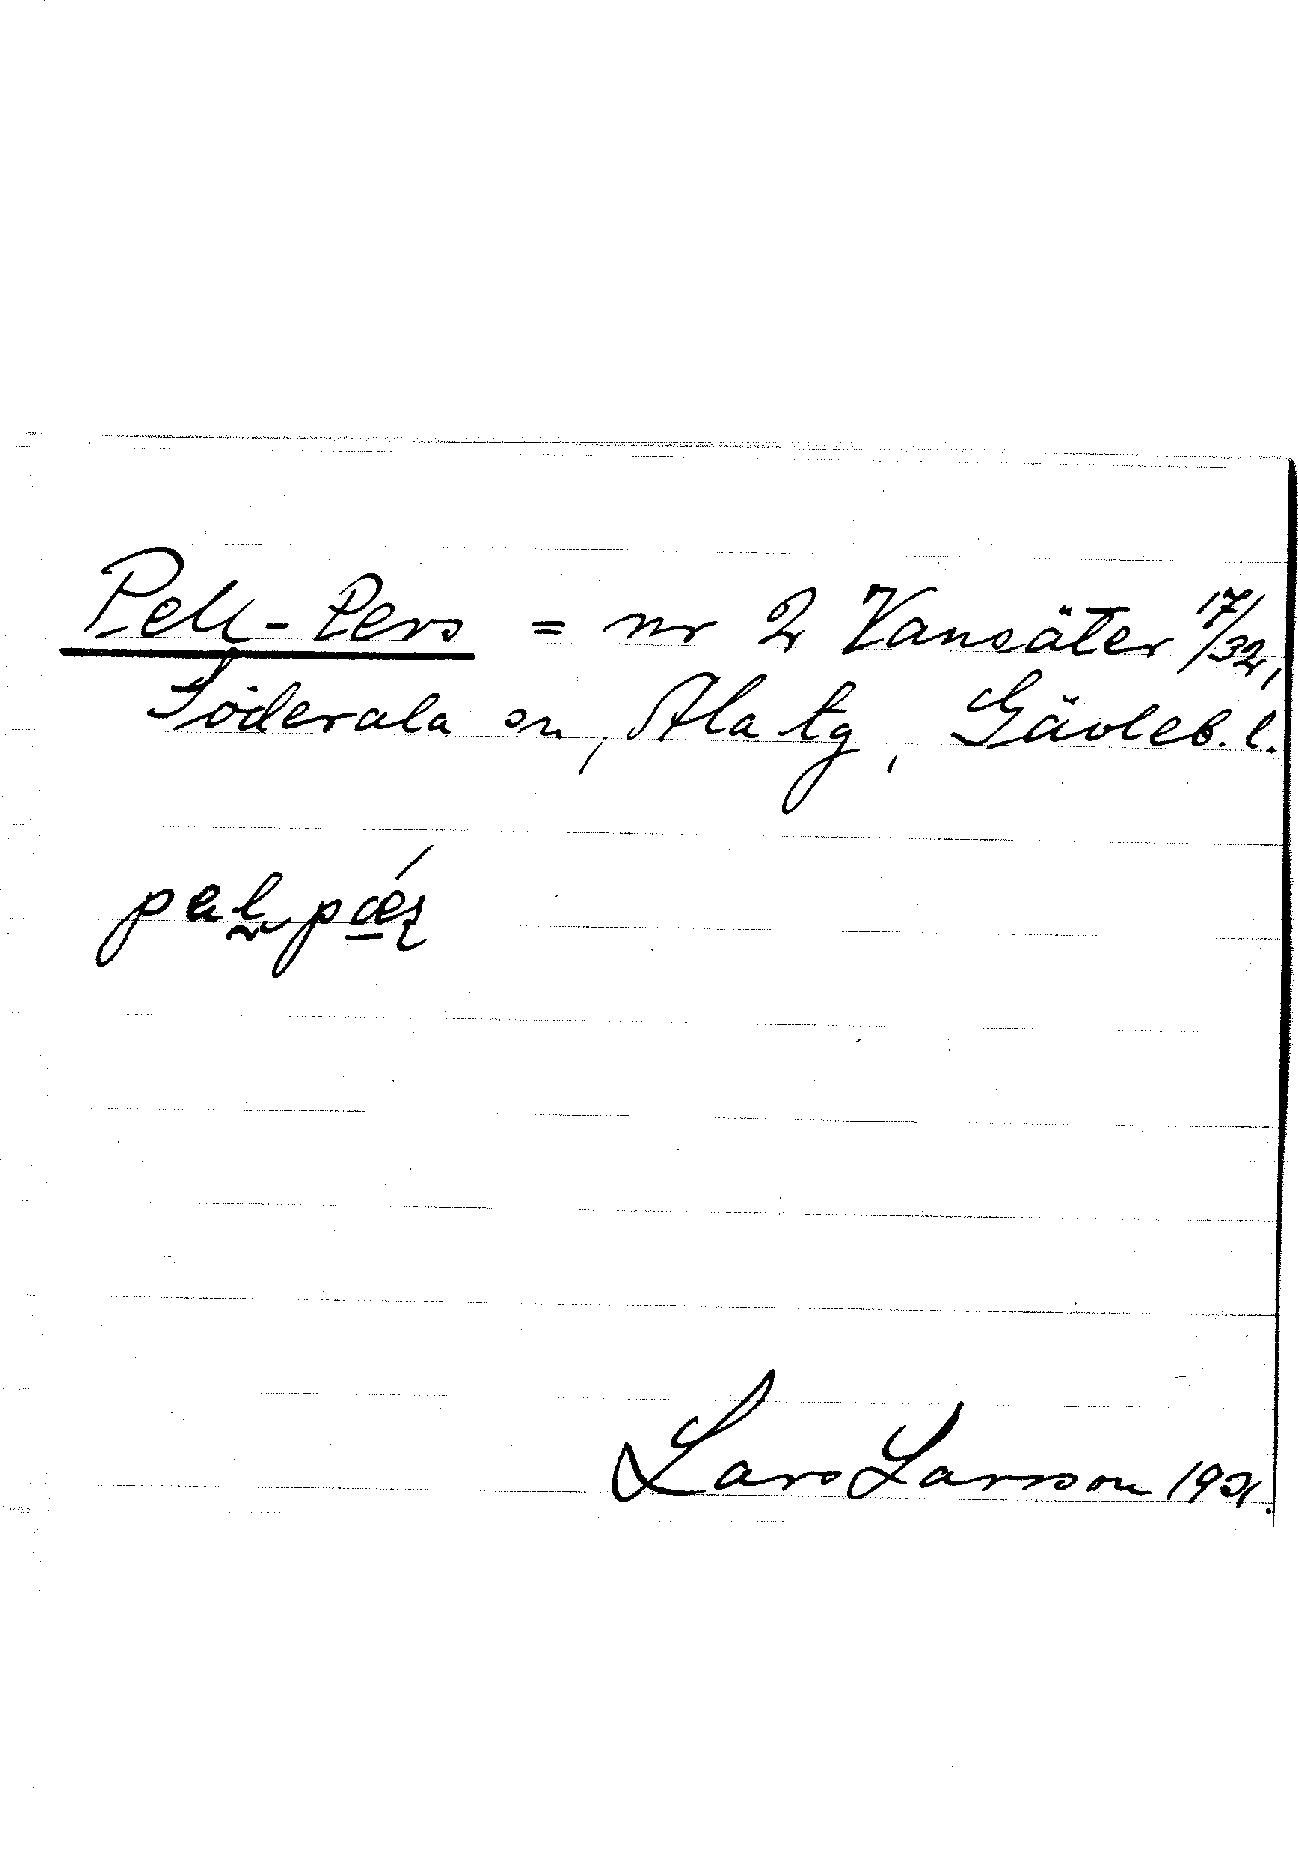 Pell-Pers = nr 2 Vansäter 17/32,
Söderala sn, Ala tg, Gävleb. l.
Lars Larsson 1921.